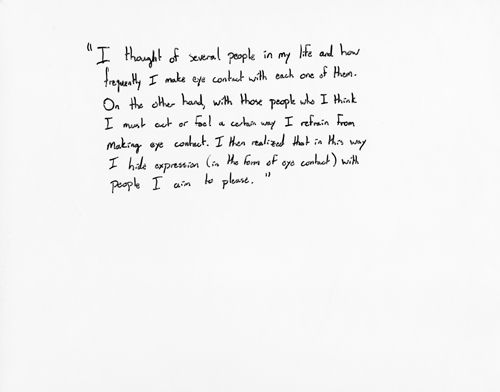 "I thought of several people in my life and how
frequently I make eye contact with each one of them.
On the other hand, with those people who I think
I must act or feel a certain way I refrain from
making eye contact. I then realized that in this way
I hide expression (in the form of eye contact) with
people I aim to please."